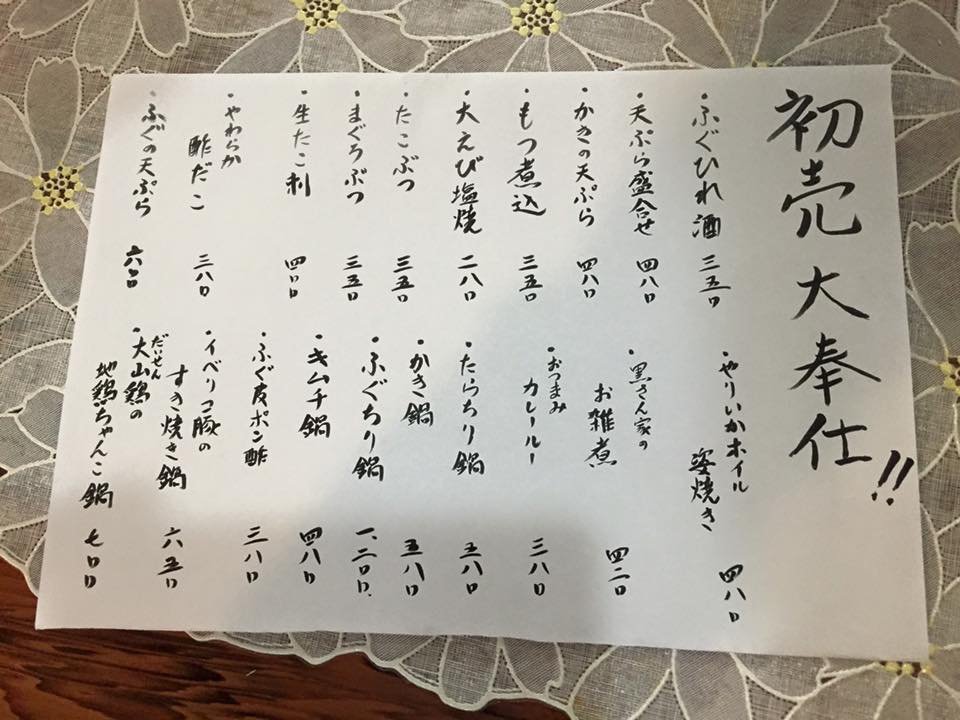 初売大奉仕!!
・ふぐひれ酒 三五〇
・天ぷら盛合せ 四八〇
・かきの天ぷら 四八〇
・もつ煮込 三五〇
・大えび塩焼 二八〇
・たこぶつ 三五〇
・まぐろぶつ 三五〇
・生たこ刺 四〇〇
・やわらか
酢だこ 三八〇
・ふぐの天ぷら 六〇〇
・やりいかホイル
姿焼き 四八〇
・黒さん家の
お雑煮 四二〇
・おつまみ
カレールー 三八〇
・たらちり鍋 五八〇
・かき鍋 五八〇
・ふぐちり鍋 一、二〇〇
・キムチ鍋 四八〇
・ふぐ皮ポン酢 三八〇
・イベリコ豚の
すき焼き鍋 六五〇
だいせん
・大山鶏の
地鶏ちゃんこ鍋 七〇〇